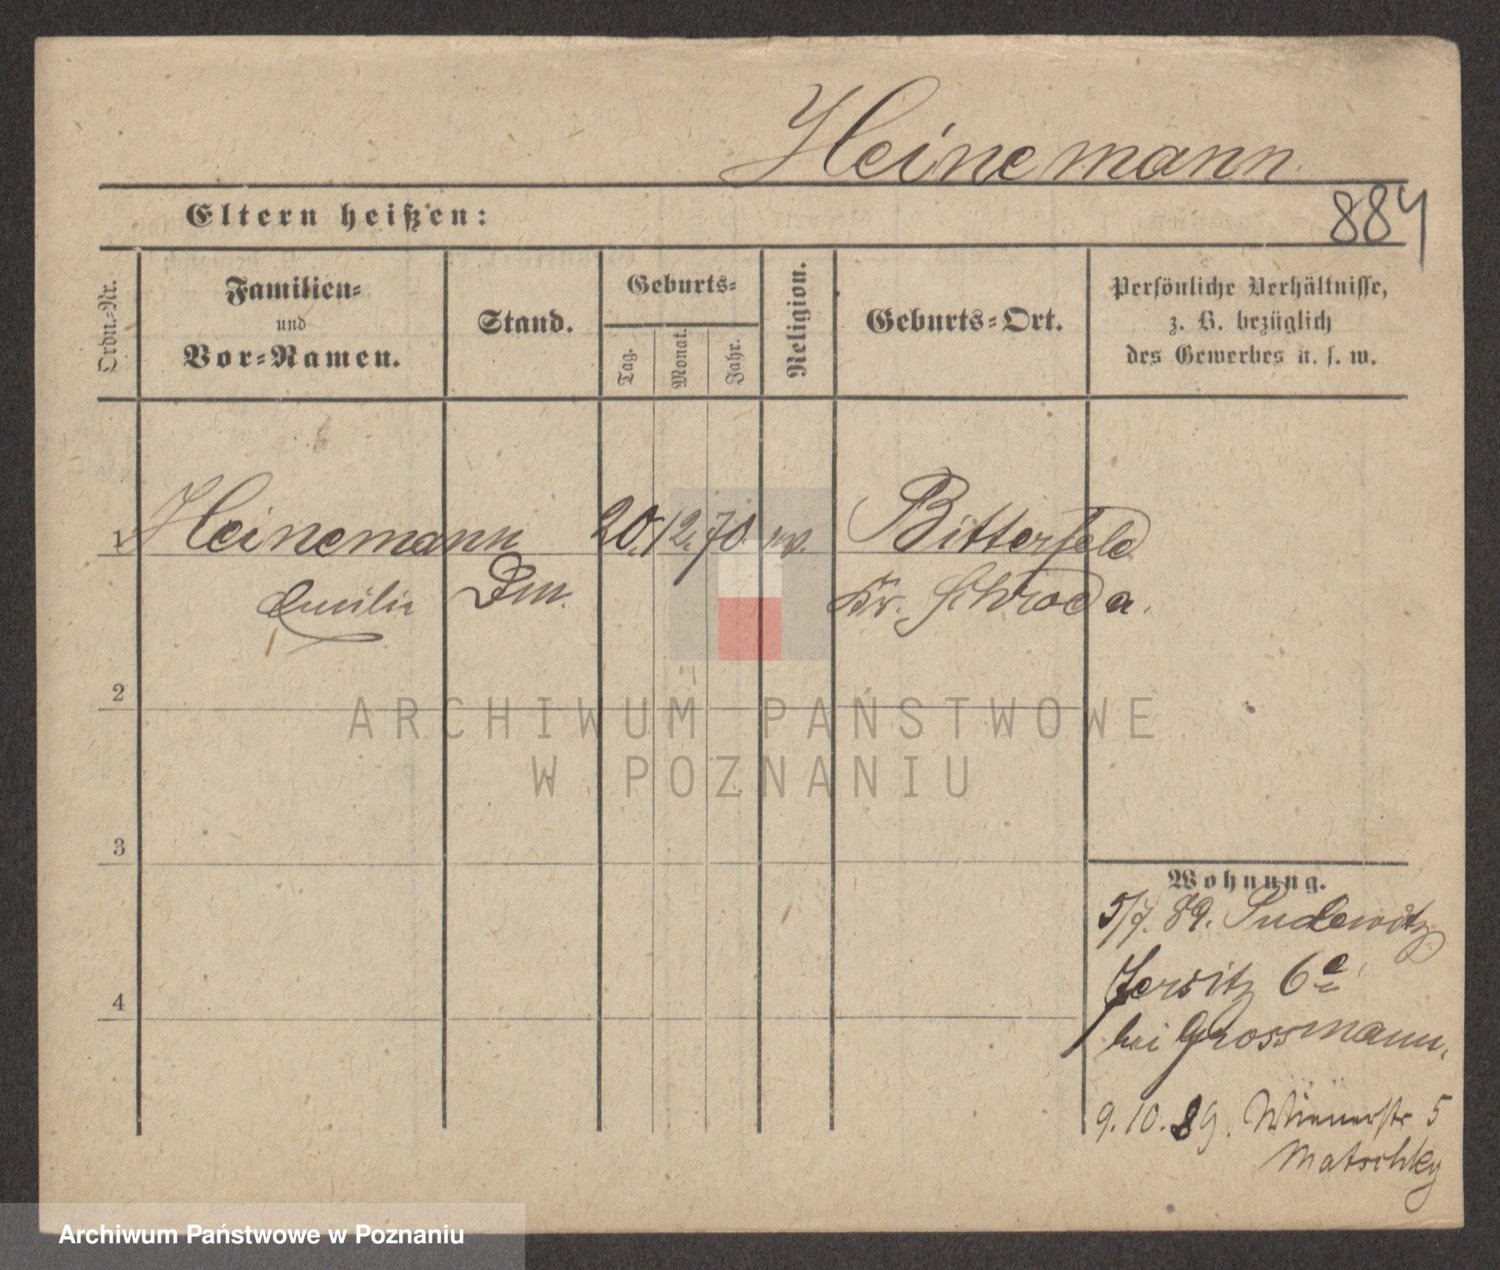 Heinemann
884
Eltern heißen:
Ordn.-Nr.
Familien-
und
Vor-Namen.
Stand.
Geburts-
Tag.
Monat.
Jahr.
Religion.
Geburts-Ort.
Persönliche Verhältnisse,
z. B. bezüglich
des Gewerbes u. s. w.
1 Heinemann 20. 12. 70 Bitterfeld
Emilie Kr. Schroda.
2
3
4
Wohnung.
5/7. 89. Sudewitz
Jersitz 6
bei Grossmann.
9. 10. 89. Wienerstr 5
Matschky
ARCHIWUM PAŃSTWOWE
W POZNANIU
Archiwum Państwowe w Poznaniu